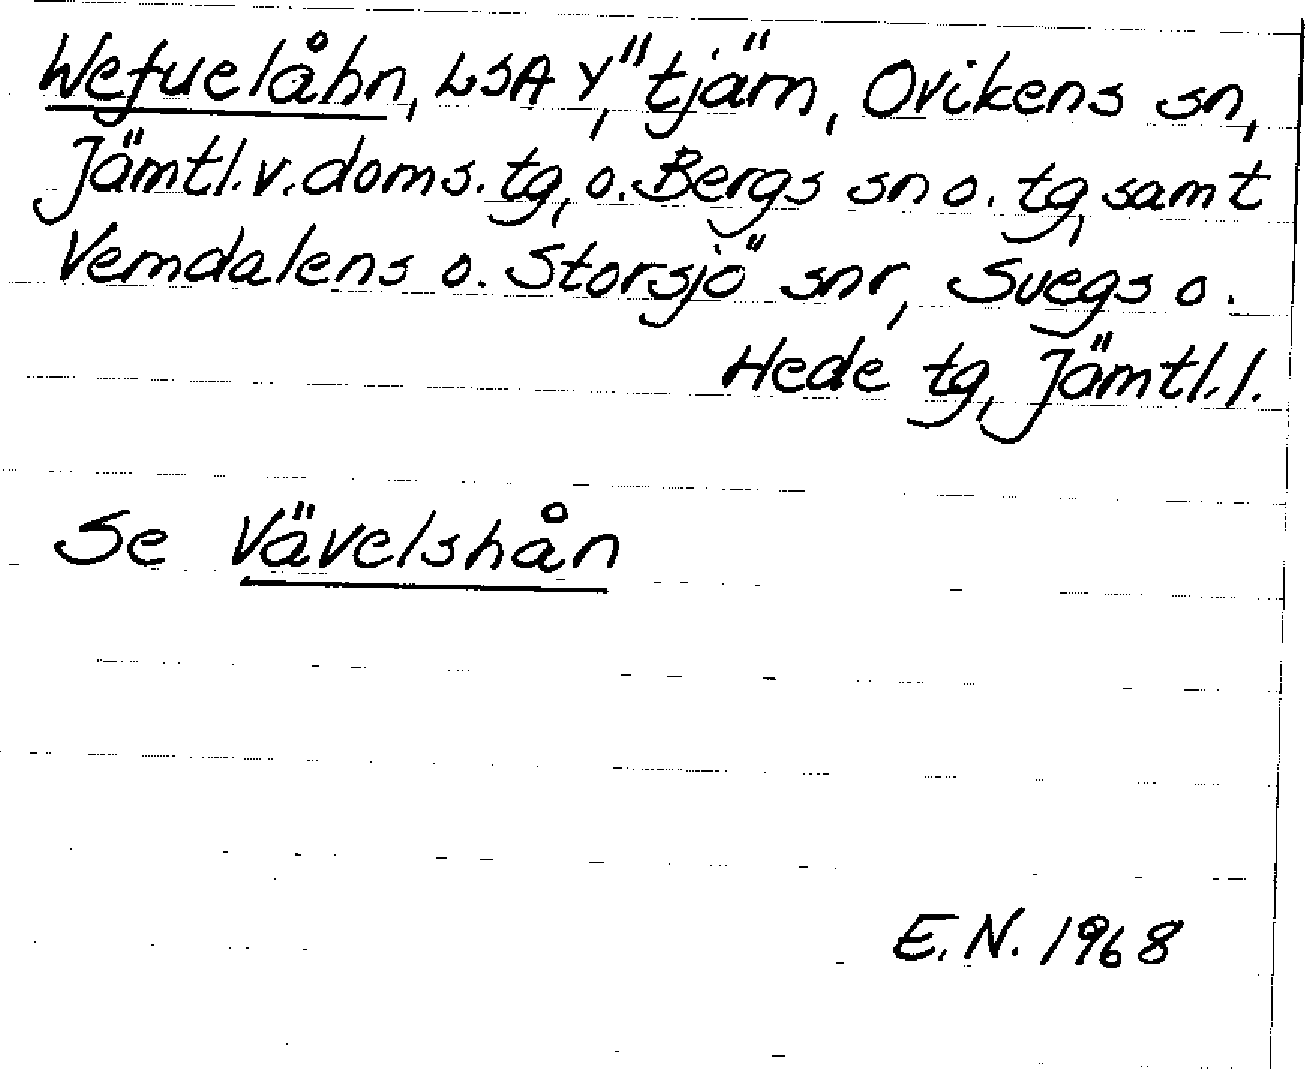 Wefuelåhn, LSA Y, "tjärn, Ovikens sn,
Jämtl.v.doms.tg, o.Bergs sn o. tg, samt
Vemdalens o. Storsjö" snr, Svegs o.
Hede tg, Jämtl.l.
Se Vävelshån
E.N. 1968